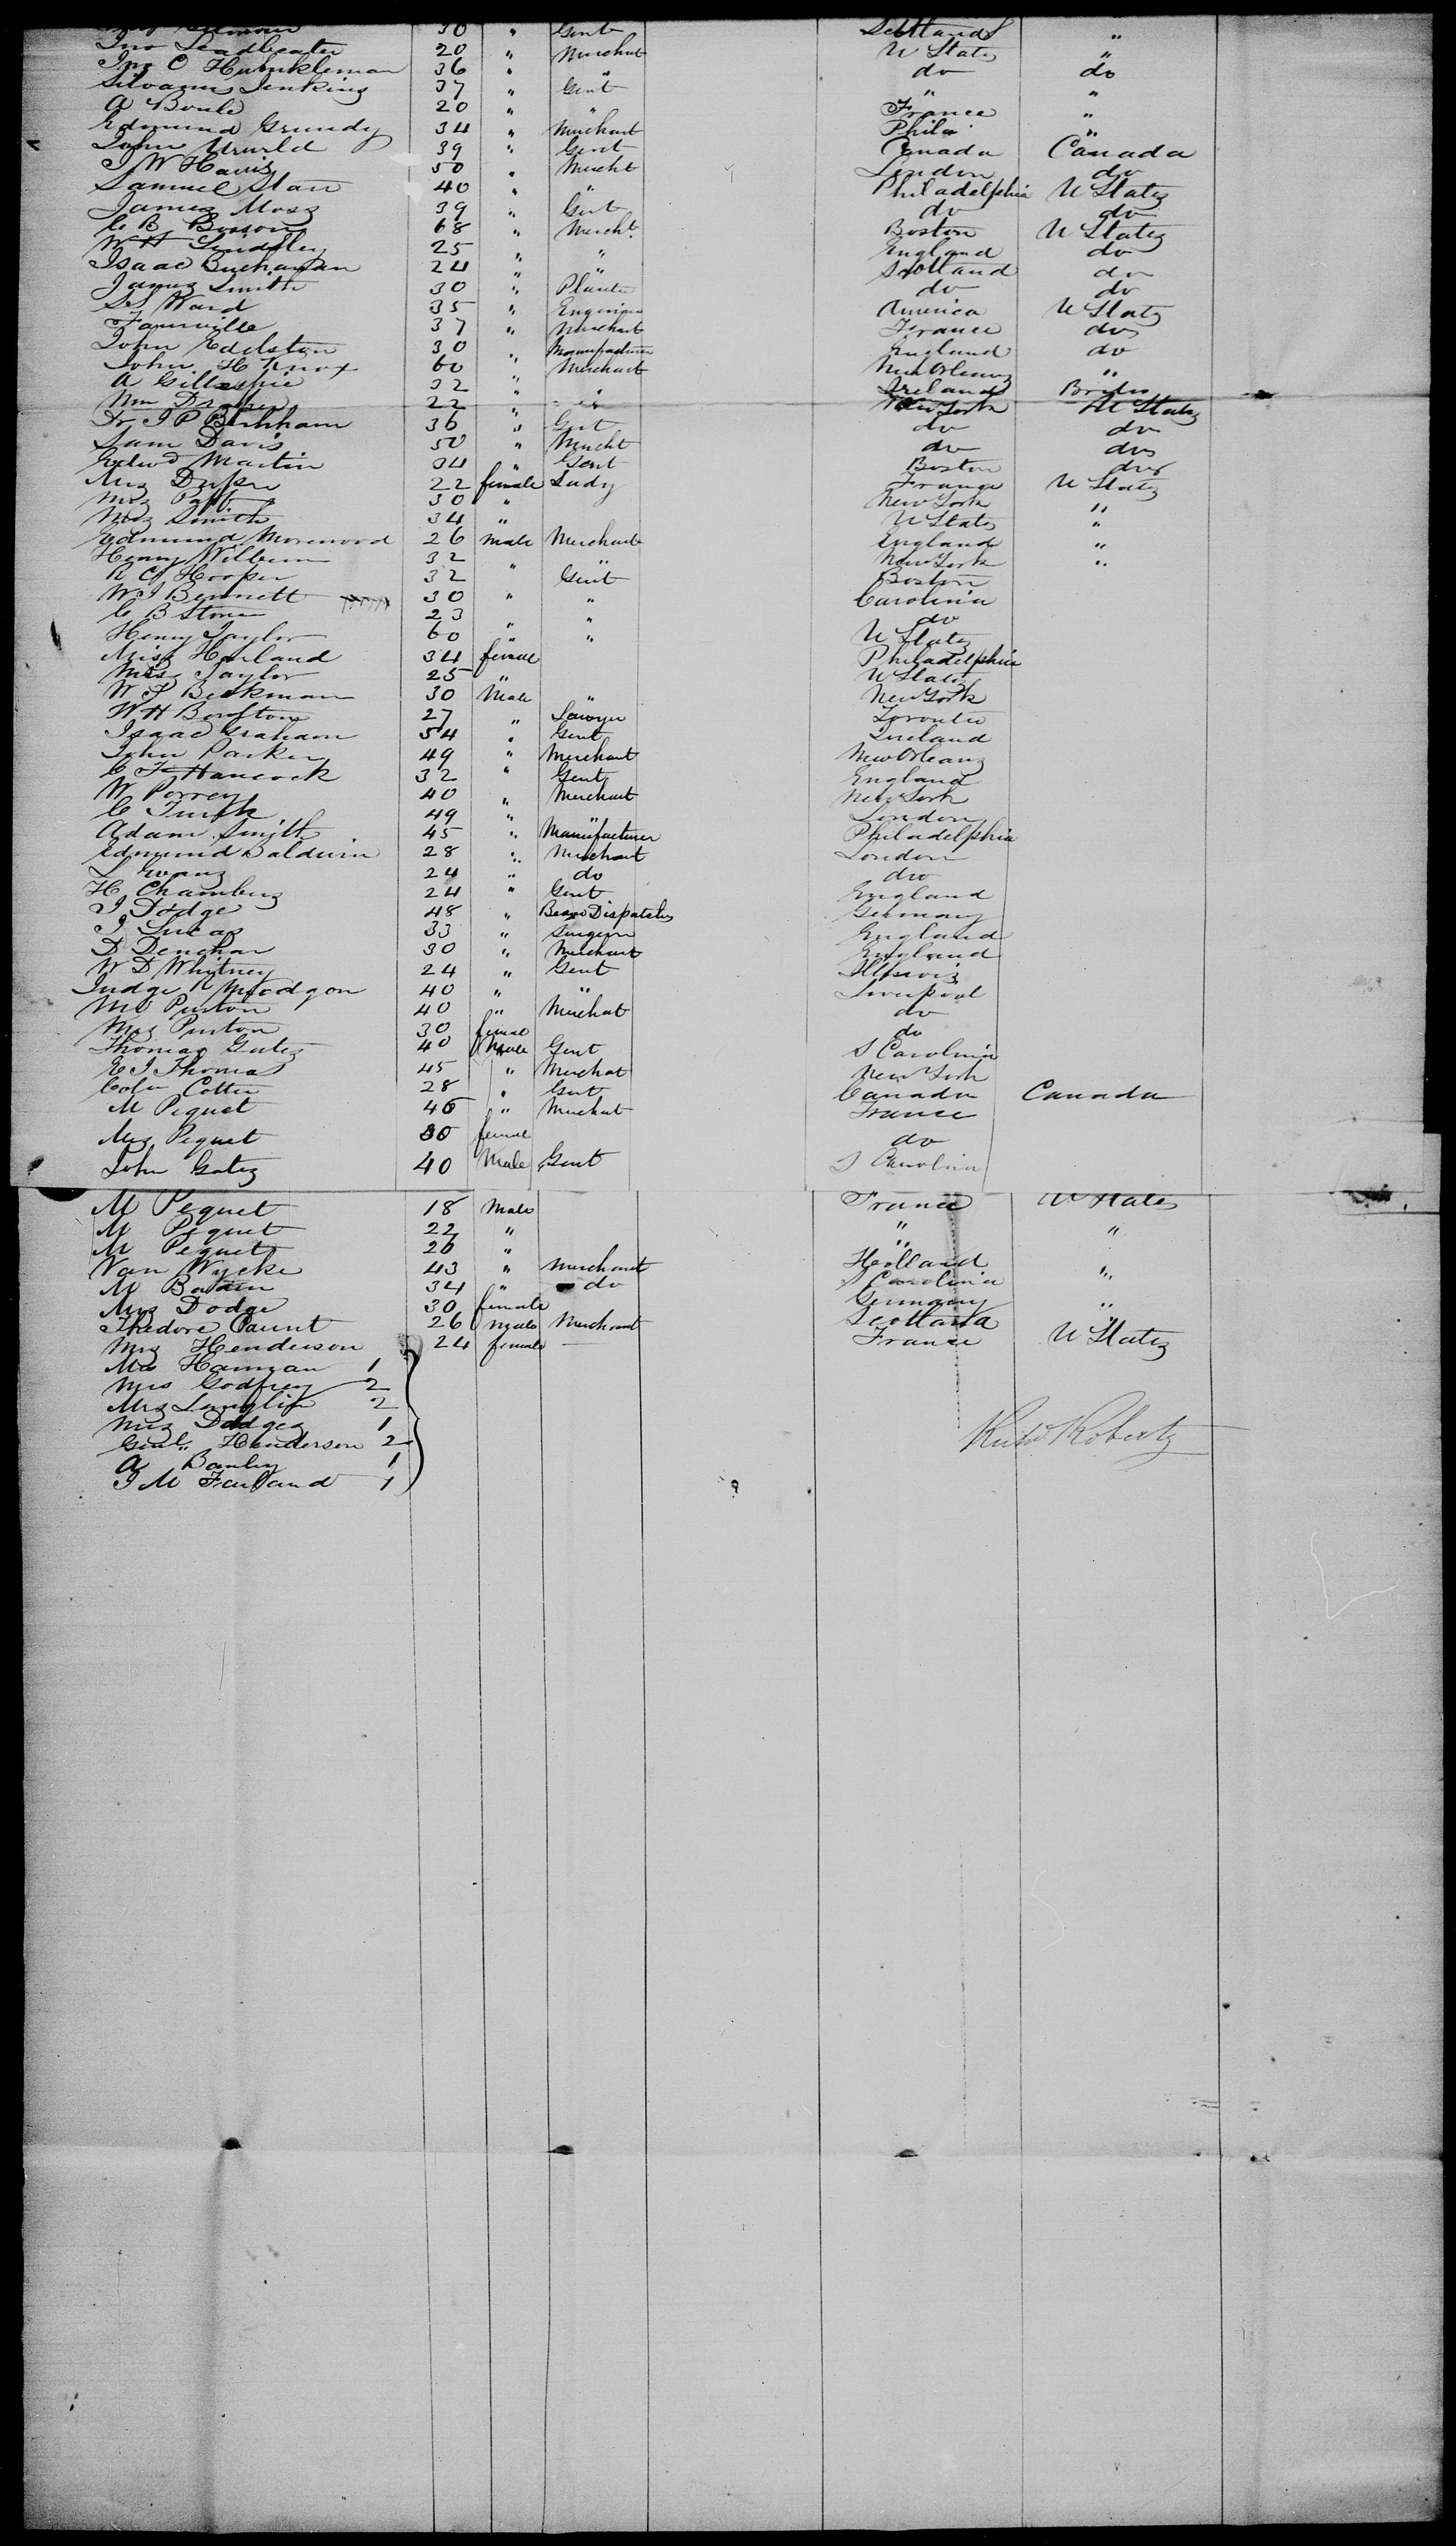 30 " Gent Scotland "
Jno Leadbeater 20 " Merchnt U States "
Jno O Hunkleman 36 " " do do
Silvanus Jenkins 37 " Gent " "
A Boule 20 " " France "
Edmund Grundy 34 " Merchant Phila "
John 39 " Gent Canada Canada
J W Harris 50 " Mercht London do
Samuel Starr 40 " " Philadelphia U States
James Moss 39 " Gent do do
C B Bosson 68 " Mercht Boston U States
W H Lindsley 25 " " England do
Isaac Buchanan 24 " " Scotland do
James Smith 30 " Planter do do
S S Ward 35 " Engineer America U States
37 " Merchant France do
John Edelston 30 " Manufacturer England do
John H Knox 60 " Merchant New Orleans "
A Gillespie 32 " " Ireland
Wm Draper 22 " " New York U States
Dr J P 36 " Gent do do
Sam Davis 50 " Mercht do do
Edwd Martin 34 " Gent Boston do
Mrs 22 female Lady France U States
Mrs 30 " New York "
Mrs Smith 34 " U States "
Edmund Morewood 26 male Merchant England "
Henry 32 " " New York "
R C Hooper 32 Gent Boston
W J Bennett 30 " " Carolina
C B Stone 23 " " do
Henry Taylor 60 " " U States
Miss Harland 34 female Philadelphia
Miss Taylor 25 " U States
W F Beekman 30 Male " New York
W H Boulton 27 " Lawyer Toronto
Isaac Graham 54 " Gent Ireland
John Parker 49 " Merchant New Orleans
C F Hancock 32 " Gent England
W Perrey 40 " Merchant New York
C 49 " " London
Adam Smith 45 " Manufacturer Philadelphia
Edmund Baldwin 28 " Merchant London
L Evans 24 " do do
H Chambers 24 " Gent England
J Dodge 48 " Bearer Dispatches Germany
J Lucas 33 " Surgeon England
D 30 " Merchant England
W D Whitney 24 " Gent
Judge 40 " " Liverpool
Mr Purton 40 " Merchat do
Mrs Purton 30 female do
Thomas Gates 40 Male Gent S Carolina
E J Thomas 45 " Merchat New York
Cotter 28 " Gent Canada Canada
M Pequet 46 " Merchat France
Mrs Pequet 30 female do
John Gates 40 Male Gent S Carolina
M Pequet 18 Male France U States
M Pequet 22 " " "
M Pequet 26 " "
Van Wycke 43 " Merchant Holland "
M 34 " do S Carolina
Mrs Dodge 30 female Germany "
Thedore 26 male Merchant Scotland "
Mrs Henderson 24 female France U States
Hannan 1
Mrs Godfrey 2
Mrs Langlin 2
Mrs Dodges 1
Genl Henderson 2
A 1
J M Farland 1
Roberts